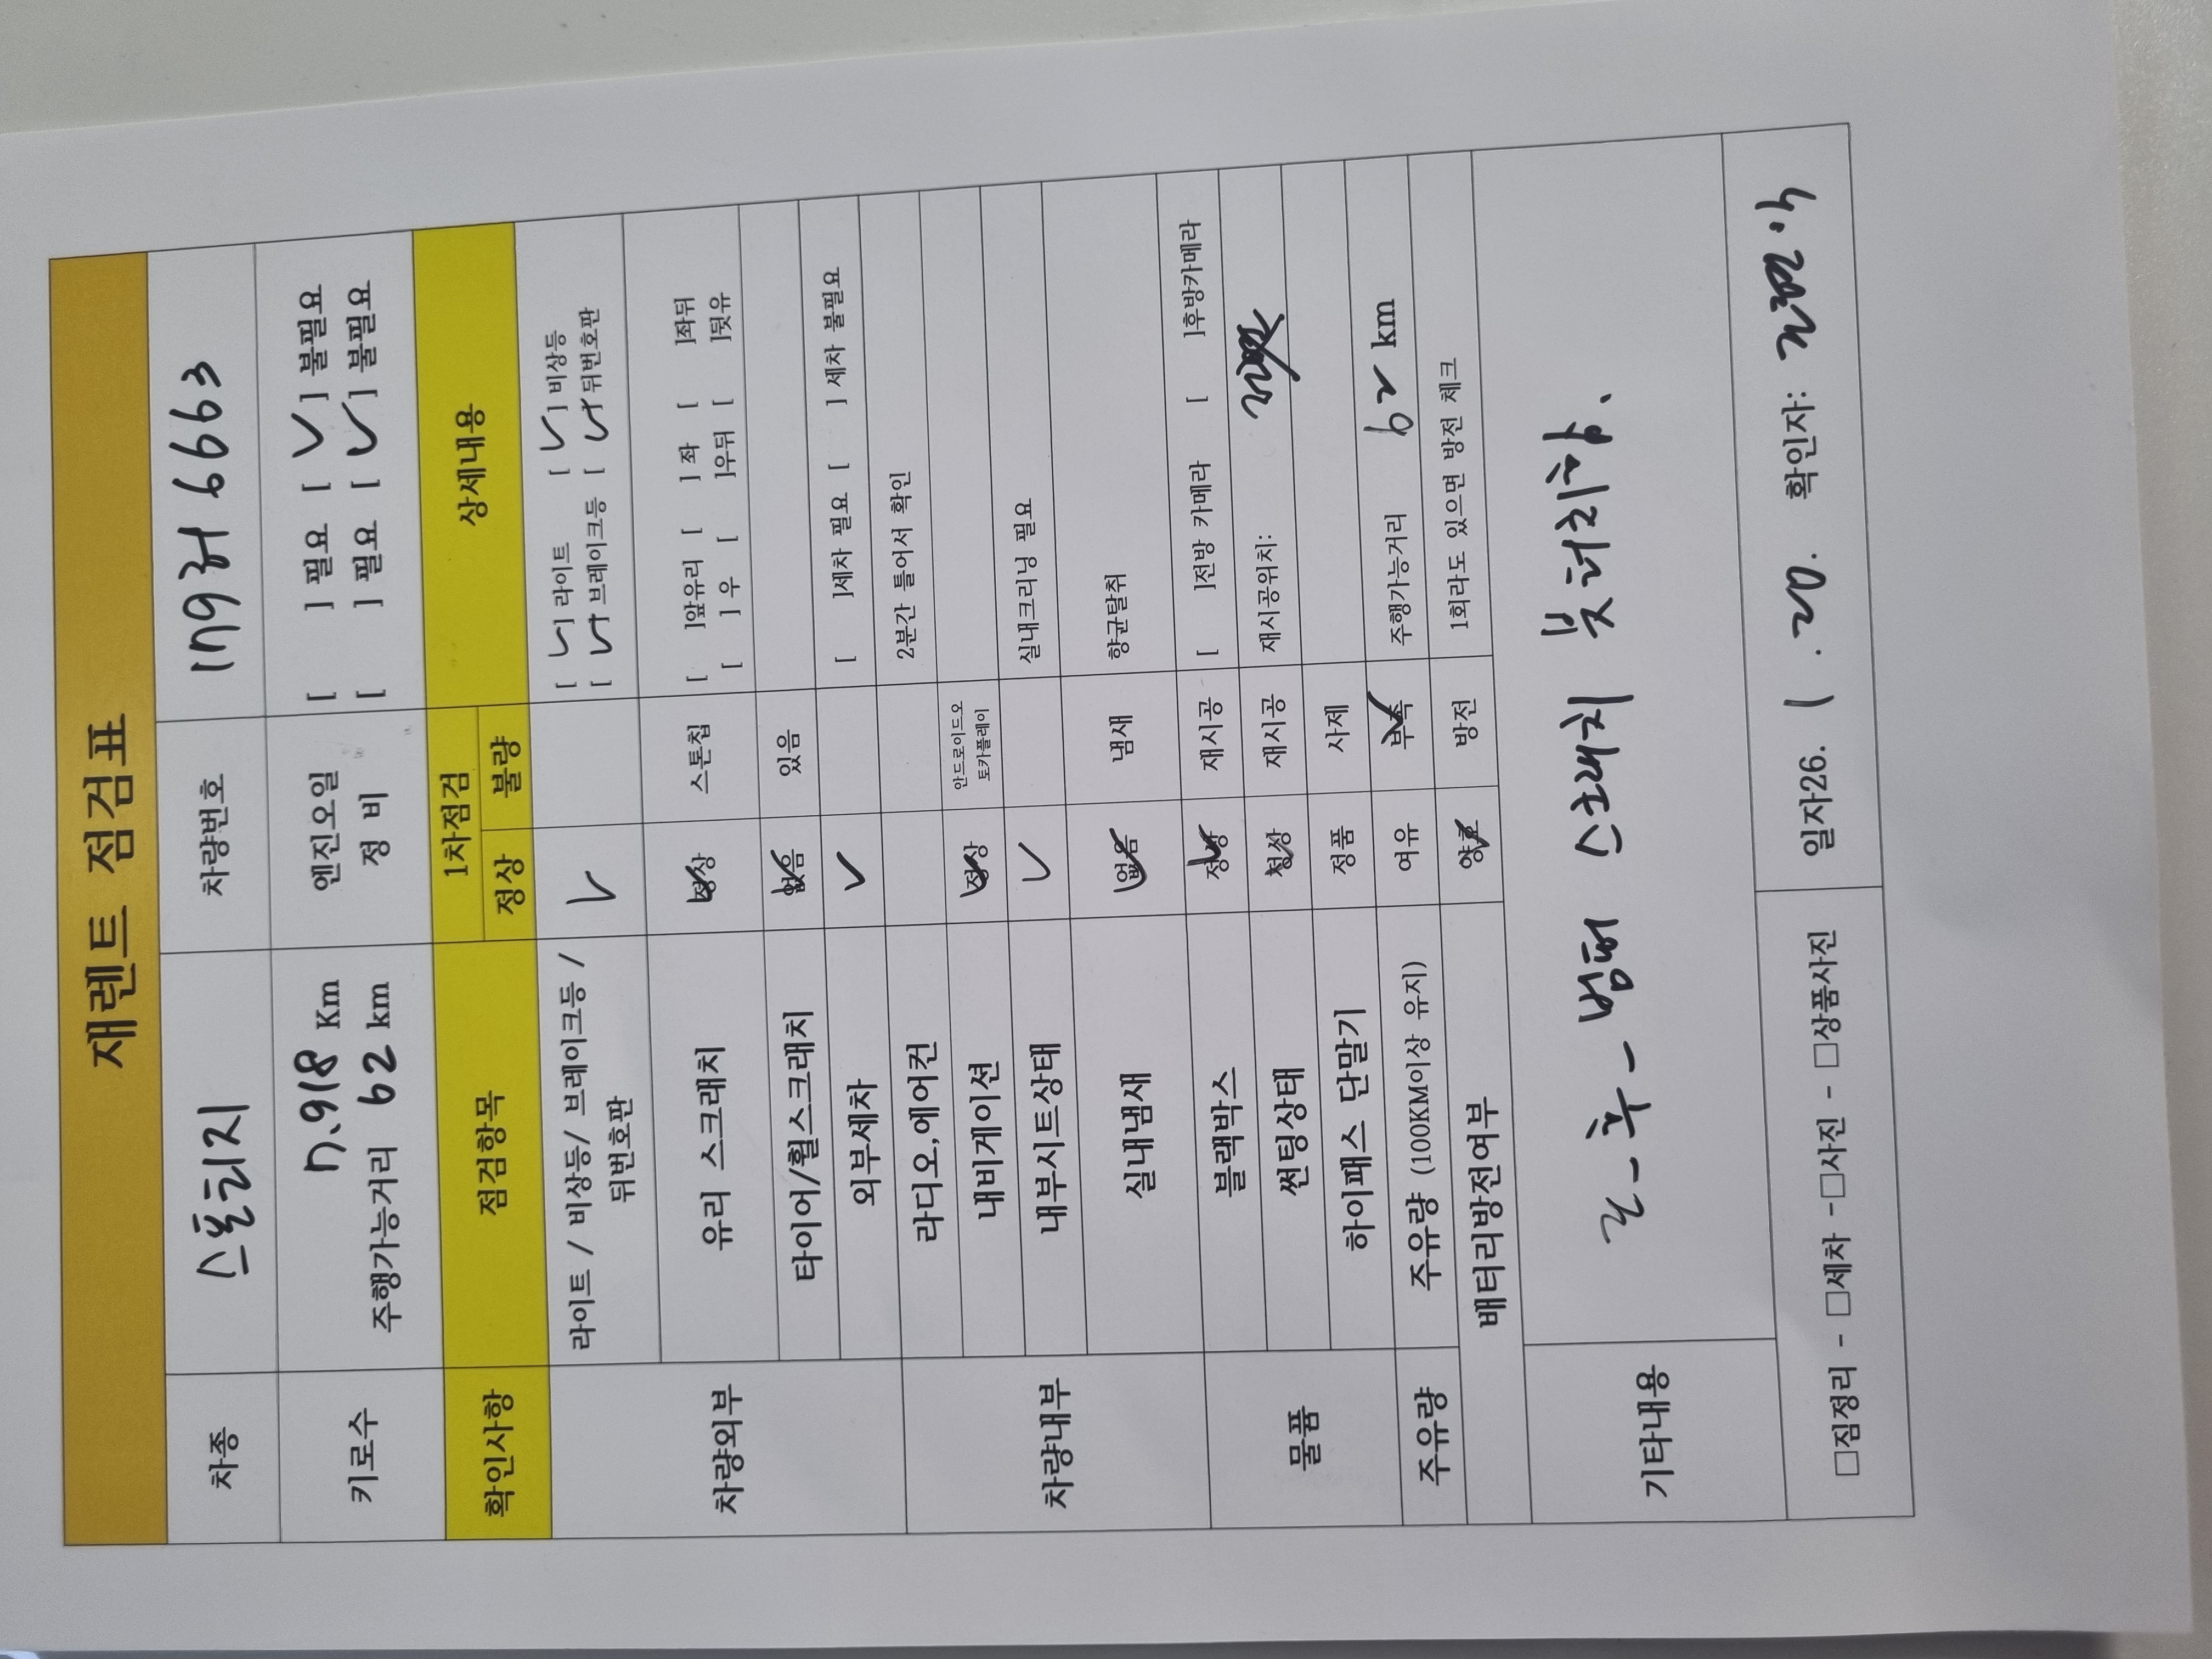 재렌트 점검표
차종 스포티지 차량번호 179허 6663
키로수 7.918 Km 엔진오일 [ ] 필요 [ ✓ ] 불필요
주행가능거리 62 km 정 비 [ ] 필요 [ ✓ ] 불필요
확인사항 점검항목 1차점검 상세내용
정상 불량
차량외부 라이트 / 비상등/ 브레이크등 / ✓ [ ✓ ] 라이트 [ ✓ ] 비상등
뒤번호판 [ ✓ ] 브레이크등 [ ✓ ] 뒤번호판
유리 스크래치 정상 ✓ 스톤칩 [ ]앞유리 [ ] 좌 [ ]좌뒤
[ ] 우 [ ]우뒤 [ ]뒷유
타이어/휠스크래치 없음 ✓ 있음
외부세차 ✓ [ ]세차 필요 [ ] 세차 불필요
차량내부 라디오,에어컨 2분간 틀어서 확인
내비게이션 정상 ✓ 안드로이드오
토카플레이
내부시트상태 ✓ 실내크리닝 필요
실내냄새 없음 ✓ 냄새 향균탈취
물품 블랙박스 정상 ✓ 재시공 [ ]전방 카메라 [ ]후방카메라
썬팅상태 정상 ✓ 재시공 재시공위치:
하이패스 단말기 정품 사제
주유량 주유량 (100KM이상 유지) 여유 부족 ✓ 주행가능거리 62 km
배터리방전여부 양호 ✓ 방전 1회라도 있으면 방전 체크
기타내용 - 후 - 범퍼 스크래치 붓터치함.
□짐정리 - □세차 -□사진 - □상품사진 일자26. 1 . 20. 확인자: